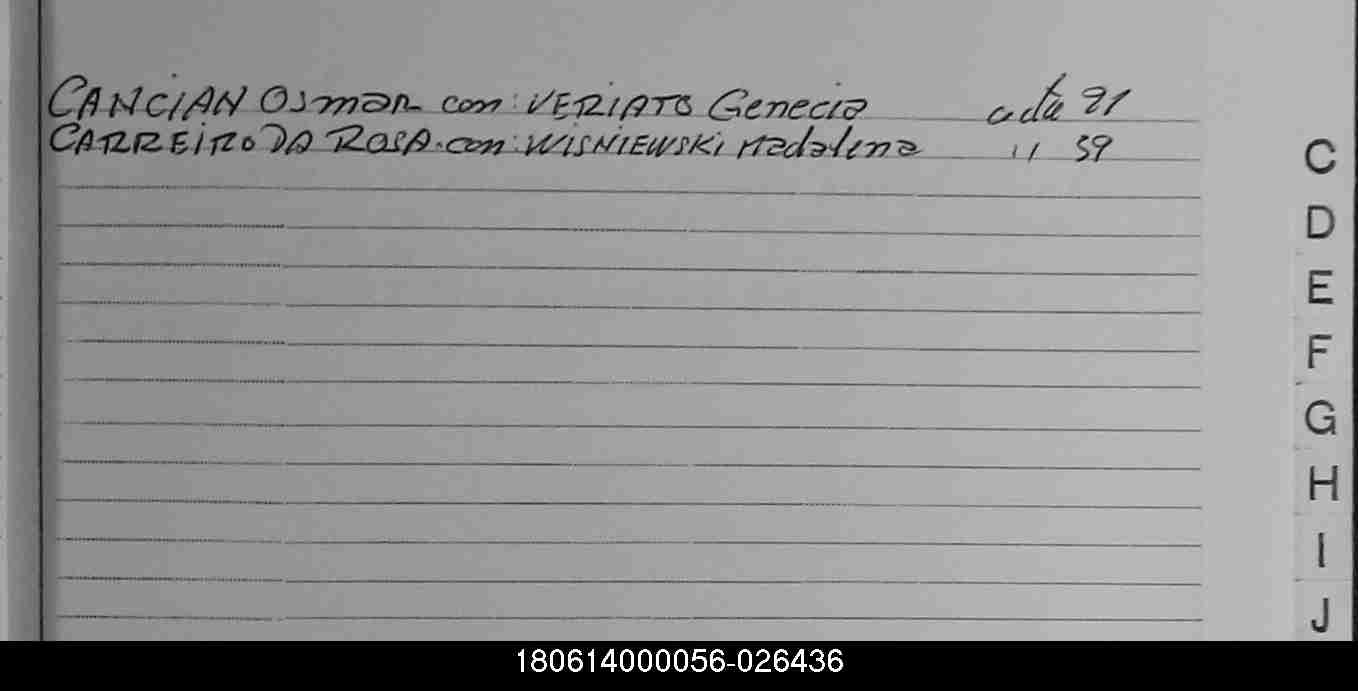 CANCIAN Osmar con: VERIATO Genecia acta 21
CARREIRO DA ROSA. con: WISNIEWSKI Madalena " 59
C
D
E
F
G
H
I
J
180614000056-026436